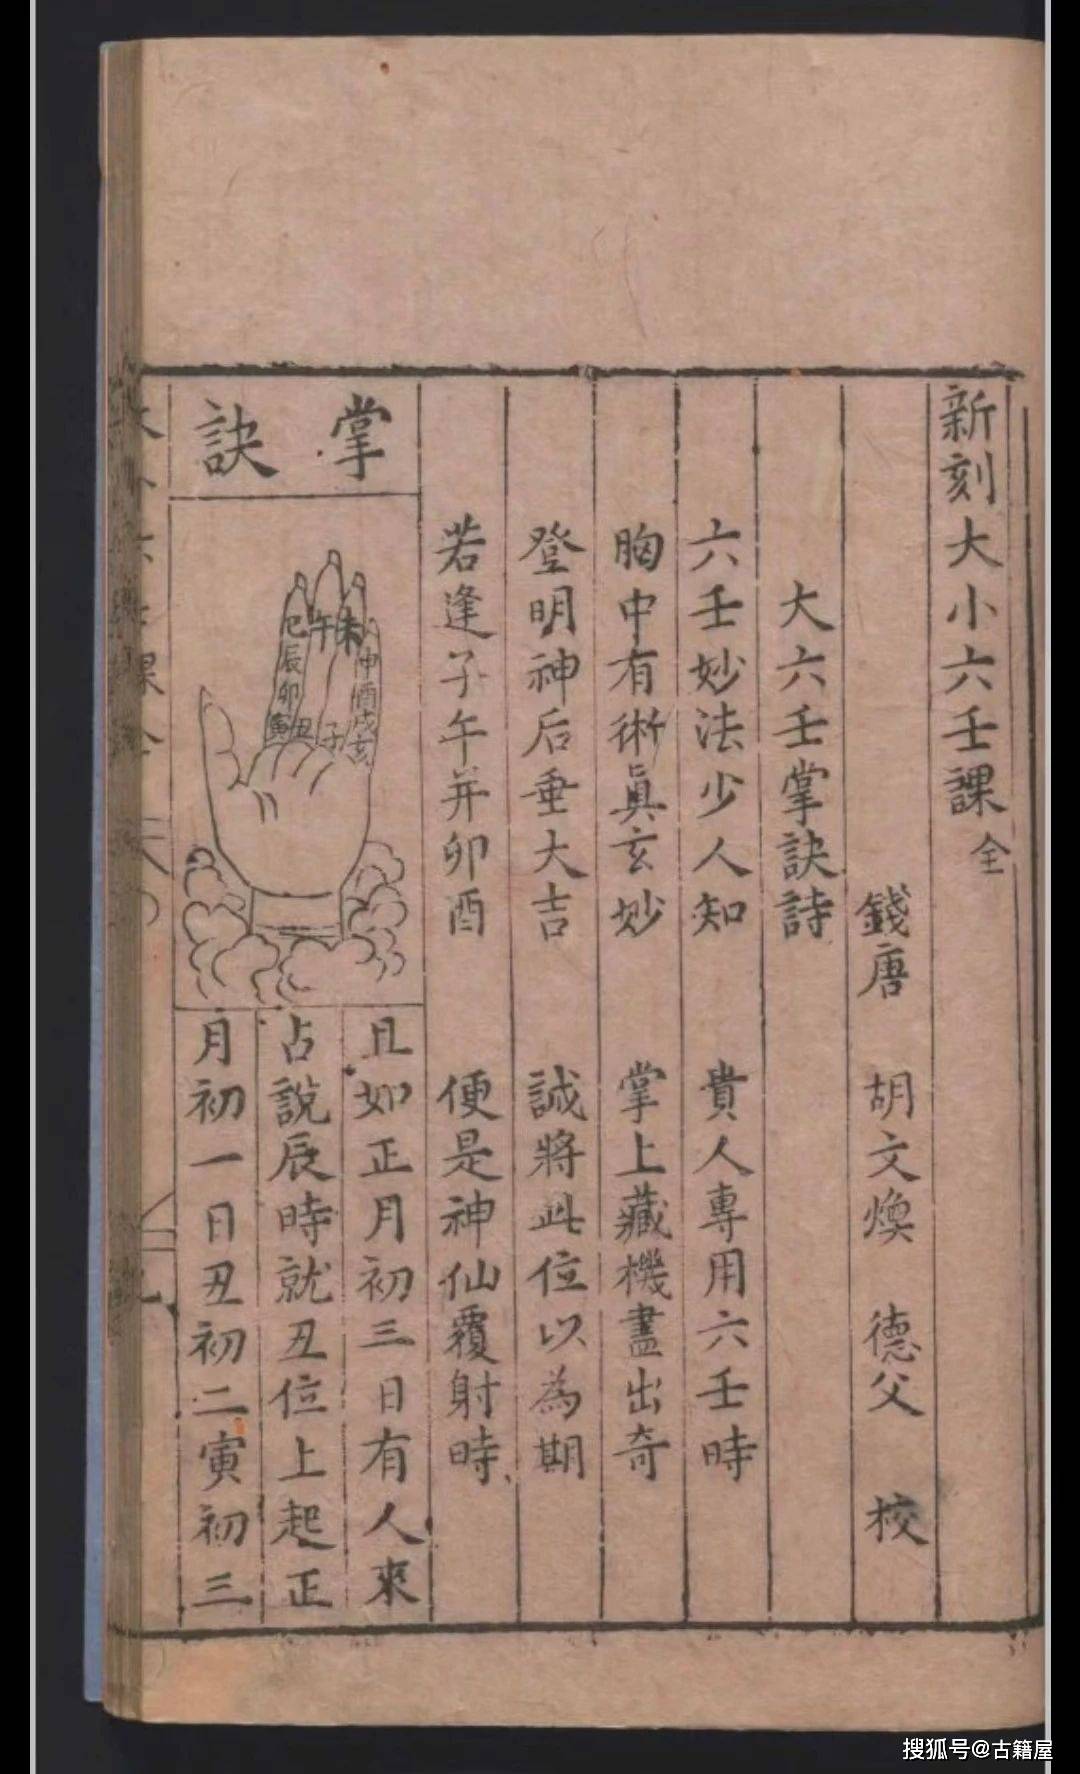 新刻大小六壬課全
錢唐 胡文煥 德父 校
大六壬掌訣詩
六壬妙法少人知 貴人專用六壬時
胸中有術真玄妙 掌上藏機盡出奇
登明神后垂大吉 誠將此位以為期
若逢子午并卯酉 便是神仙覆射時
掌訣
巳辰卯寅
午
未
申酉戌亥
丑
子
且如正月初三日有人來
占說辰時就丑位上起正
月初一日丑初二寅初三
搜狐号@古籍屋